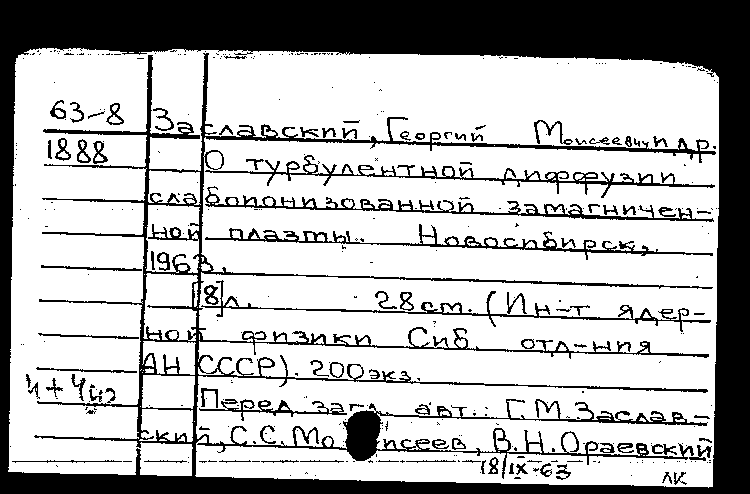 63-8 Заславский, Георгий Моисеевич и др.
1888 О турбулентной диффузии
слабоионизованной замагничен-
ной плазмы. Новосибирск,
1963.
[8]л. 28 см. (Ин-т ядер-
ной физики Сиб. отд-ния
АН СССР). 200 экз.
Перед загл. авт.: Г.М. Заслав-
ский, С.С. Моисеев, В.Н. Ораевский
18/IX-63 ЛК